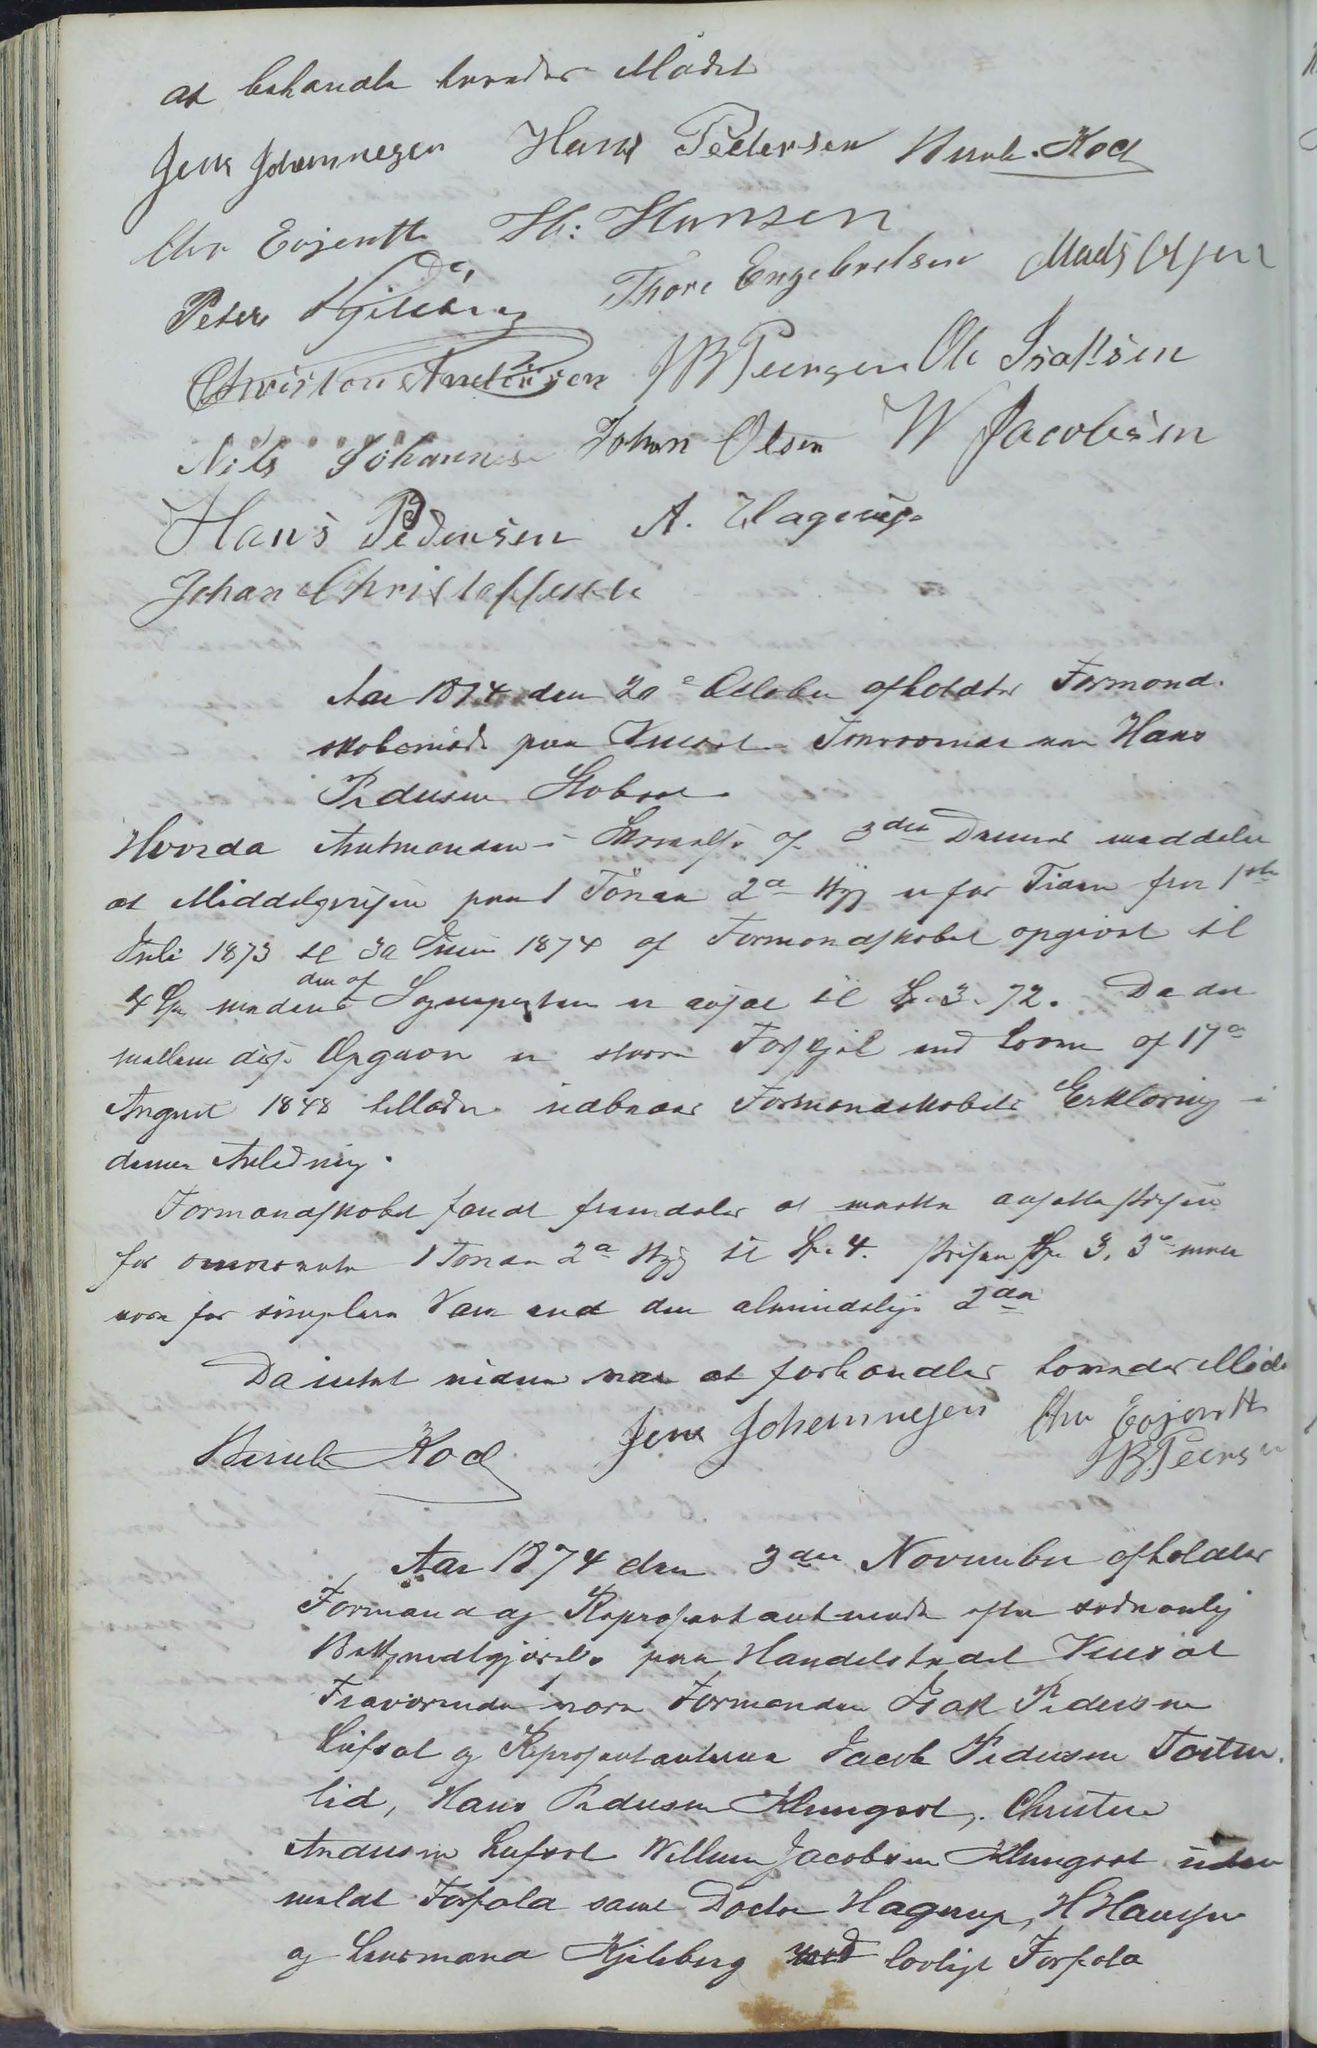 at behandle hævedes Mødet
Jens Johannesen Hans Pedersen Bernh. Koch
Chr Evjenth H: Hansen
Peter Kjelsberg Thore Engebretsen Mads Olsen
Christen Andersen JB Peersen Ole Isaksen
Nils Johannes Johan Olsen W Jacobsen
Hans Pedersen A. Hagerup
Johan Christoffersen
Aar 1874 den 20e October afholdtes Formand-
skabsmøde paa Fraværende var Hans
Pedersen
Hvorda Amtmanden i Skrivelse af 3die Dennes meddeler
at Middelprisen paa 1 Tønne 2den Byg er for Tiden fra 1ste
Juli 1873 til 30 Juni 1874 af Formandskabet opgivet til
4 Spd medens den af Sogneprsten er ansat til Sp. 3. 72. Da der
mellem disse Opgaver er større Forskjel end Loven af 17de
August 1848 tillader udbedes Formandskabets Erklæring i
denne Anledning.
Formandskabet fandt fremdeles at maatte ansætte Prisen
for omforente 1 Tønne 2den Byg til Sp. 4. Prisen Sp 3, 3 maa
være for simplere Vare end den almindelige 2den
Da intet videre var at forhandles hævedes Møde
Bernh Koch Jens Johannesen Chr Evjenth
JB. Peersen
Aar 1874 den 3die November afholdtes
Formand og Repræsentantmøde efter sædvanlig
Bekjendtgjørelse paa Handelstedet
Fraværende vare Formanden Isak Pedersen
og Repræsentanterne Jacob Pedersen Torten-
lid, Hans Pedersen Klungset, Christen
Andersen Willum Jacobsen Klungset uden
meldt Forfald samt Doctor Hagerup, H Hansen
og Lensmand Kjelsberg med lovligt Forfald